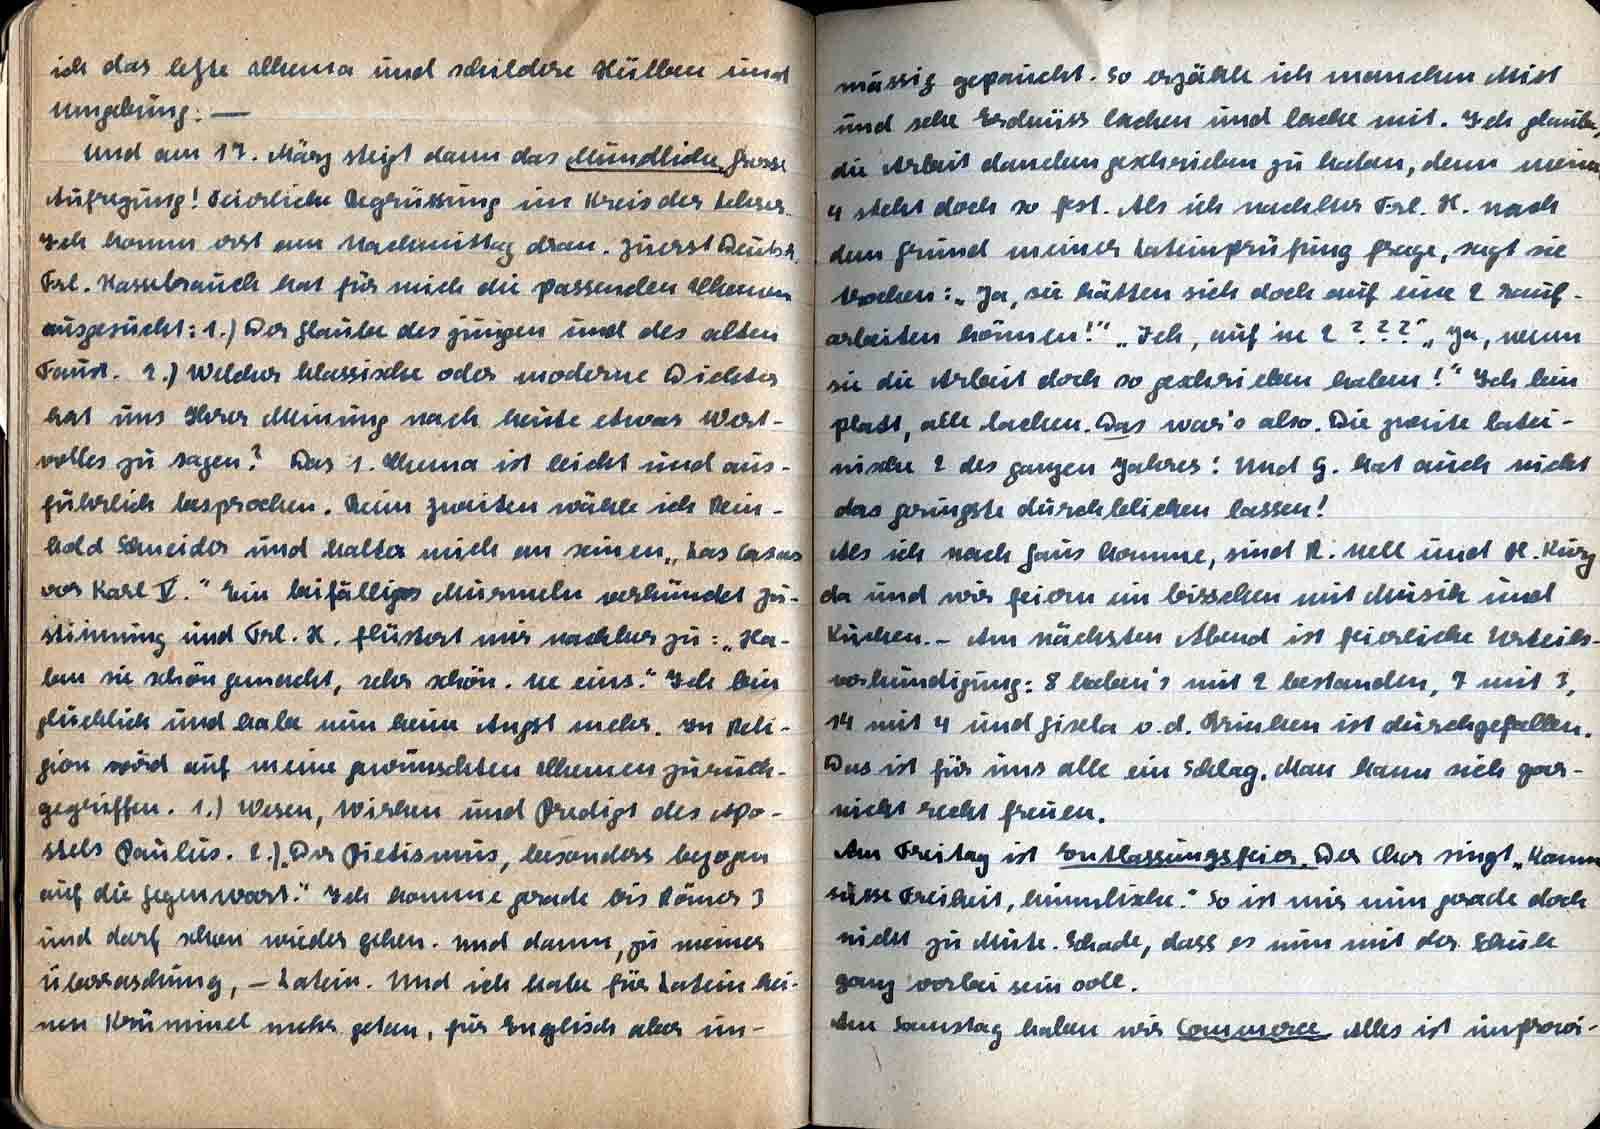 ich das letzte Thema und schildere Hülben und
Umgebung. —
Und am 17. März steigt dann das Mündliche, grosse
Aufregung! Feierliche Begrüssung im Kreis der Lehrer.
Ich komm erst am Nachmittag dran. Zuerst Deutsch.
Frl. Hassebrauch hat für mich die passenden Themen
ausgesucht: 1.) Der Glaube des jungen und des alten
Faust. 2.) Welcher klassische oder moderne Dichter
hat uns Ihrer Meinung nach heute etwas Wert-
volles zu sagen? Das 1. Thema ist leicht und aus-
führlich besprochen. Beim zweiten wähle ich Rein-
hold Schneider und halte mich an seinen „Las Casas
vor Karl V." Ein beifälliges Murmeln verkündet Zu-
stimmung und Frl. H. flüstert mir nachher zu: „Ha-
ben sie schön gemacht, sehr schön. Ne eins." Ich bin
glücklich und habe nun keine Angst mehr. In Reli-
gion wird auf meine gewünschten Themen zurück-
gegriffen. 1.) Wesen, Wirken und Predigt des Apo-
stels Paulus. 2.) „Der Pietismus, besonders bezogen
auf die Gegenwart." Ich komme gerade bis Römer 3
und darf schon wieder gehen. Und dann, zu meiner
Überraschung, — Latein. Und ich habe für Latein kei-
nen Krümmel mehr getan, für Englisch aber un-
mässig gepaucht. So erzähle ich manchen Mist
und sehe Erdnüss lachen und lache mit. Ich glaube,
die Arbeit danebengeschrieben zu haben, denn meine
4 steht doch so fest. Als ich nachher Frl. H. nach
dem Grund meiner Lateinprüfung frage, sagt sie
trocken: „Ja, sie hätten sich doch auf eine 2 rauf-
arbeiten können!" „Ich, auf 'ne 2 ???" „Ja, wenn
sie die Arbeit doch so geschrieben haben!" Ich bin
platt, alle lachen. Das war's also. Die zweite latei-
nische 2 des ganzen Jahres! Und G. hat auch nicht
das geringste durchblicken lassen!
Als ich nach Haus komme, sind R. Nell und H. Kurz
da und wir feiern ein bisschen mit Musik und
Kuchen. — Am nächsten Abend ist feierliche Urteils-
verkündigung: 8 haben's mit 2 bestanden, 7 mit 3,
14 mit 4 und Gisela v. d. Brinken ist durchgefallen.
Das ist für uns alle ein Schlag. Man kann sich gar-
nicht recht freuen.
Am Freitag ist Entlassungsfeier. Der Chor singt „Komm
süsse Freiheit, himmlische." So ist mir nun gerade doch
nicht zu Mute. Schade, dass es nun mit der Schule
ganz vorbei sein soll.
Am Samstag haben wir Commerce. Alles ist improvi-